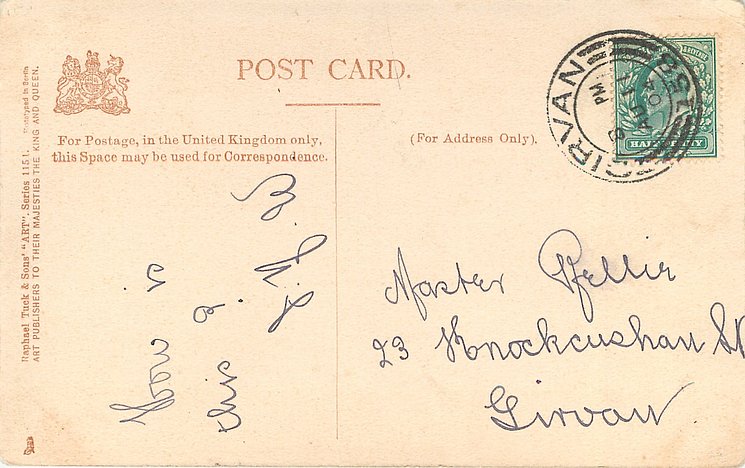 POST CARD.
For Postage, in the United Kingdom only,
this Space may be used for Correspondence.
(For Address Only).
How is
this ?
Master
23 Knockcushan St
Girvan
GIRVAN
158
PM
AU 8
04
HALFPENNY
Raphael Tuck & Sons' "ART", Series 1151. Phototyped in Berlin
ART PUBLISHERS TO THEIR MAJESTIES THE KING AND QUEEN.